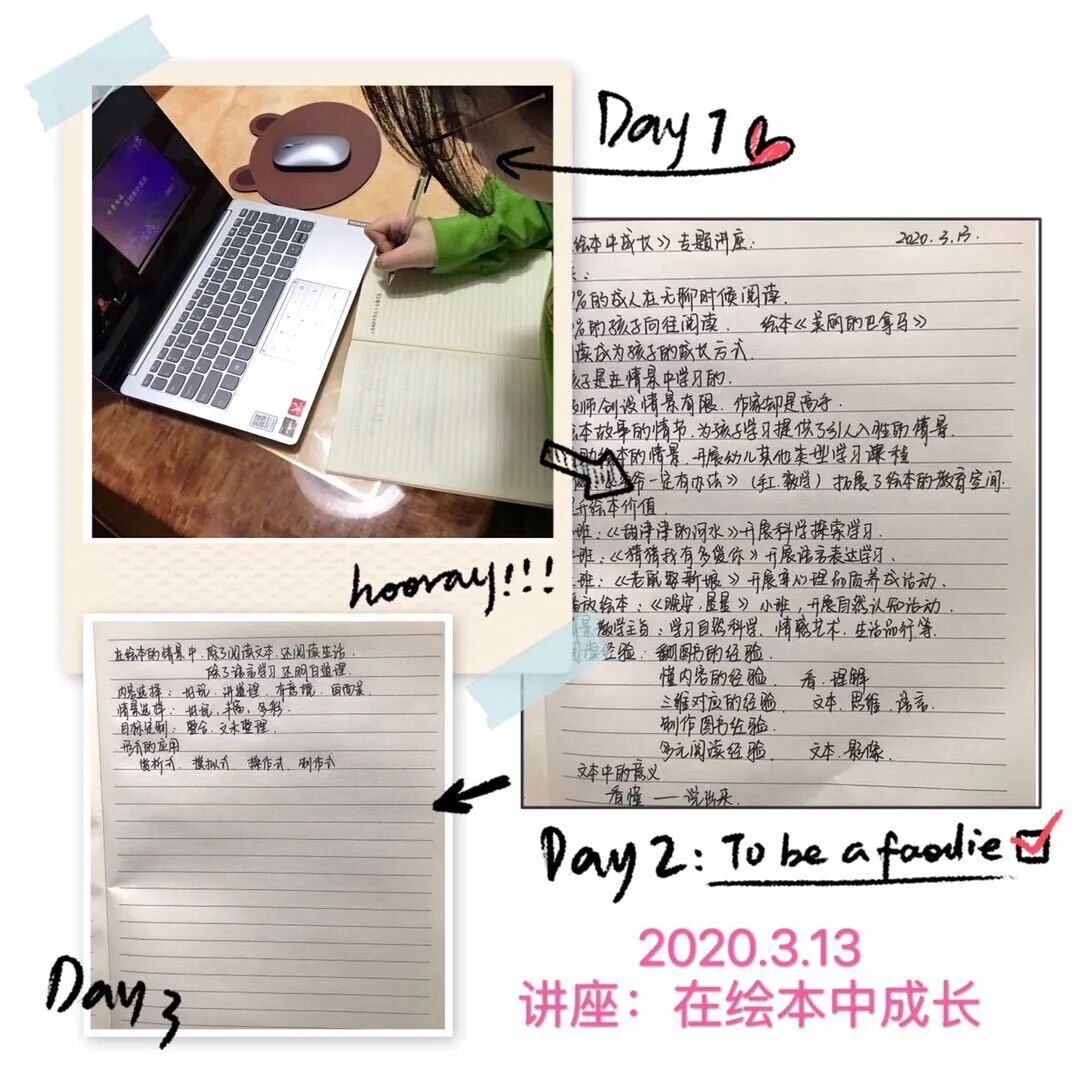 Day 1
绘本中成长》专题讲座: 2020.3.13.
%的成人在无聊时候阅读.
%的孩子向往阅读. 绘本《美丽的巴拿马》
读成为孩子的成长方式.
孩子是在情景中学习的.
师创设情景有限. 作家却是高手.
本故事的情节.为孩子学习提供了引人入胜的情景.
助绘本的情景.开展幼儿其他类型学习课程
爷一定有办法》(手工.数学) 拓展了绘本的教育空间.
开绘本价值.
班:《甜津津的河水》开展科学探索学习.
班:《猜猜我有多爱你》开展语言表达学习.
班:《老鼠娶新娘》开展 心理品质养成活动.
放绘本:《晚安,星星》小班,开展自然认知活动.
景教学主旨:学习自然科学、情感艺术、生活品行等.
阅读经验: 翻图书的经验.
懂内容的经验. 看.理解
三维对应的经验. 文本.思维.语言.
制作图书经验.
多元阅读经验. 文本.影像.
文本中的意义
看懂——说出来.
hooray!!!
在绘本的情景中.除了阅读文本.还阅读生活.
除了语言学习.还明白道理.
内容选择: 好玩、讲道理、有意境、
情景选择: 好玩、丰富、多彩.
目标定制: 整合、
形式的应用
赏析式、模拟式、操作式、制作式
Day 2: To be a foodie
Day 3
2020.3.13
讲座：在绘本中成长